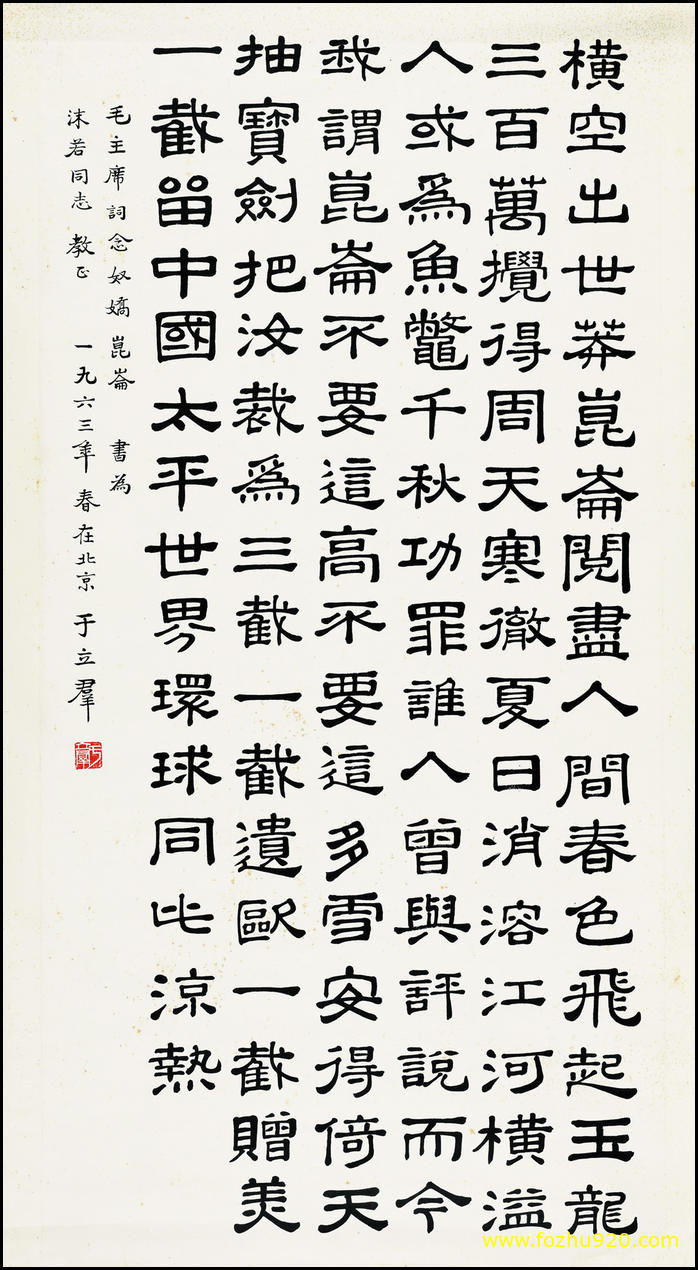 橫空出世莽崑崙閱盡人間春色飛起玉龍
三百萬攪得周天寒徹夏日消溶江河橫溢
人或爲魚鼈千秋功罪誰人曾與評說而今
我謂崑崙不要這高不要這多雪安得倚天
抽寶劍把汝裁爲三截一截遺歐一截贈美
一截留中國太平世界環球同此涼熱
毛主席詞念奴嬌 崑崙 書為
沫若同志 教正 一九六三年 春在北京 于立羣
www.fozhu920.com